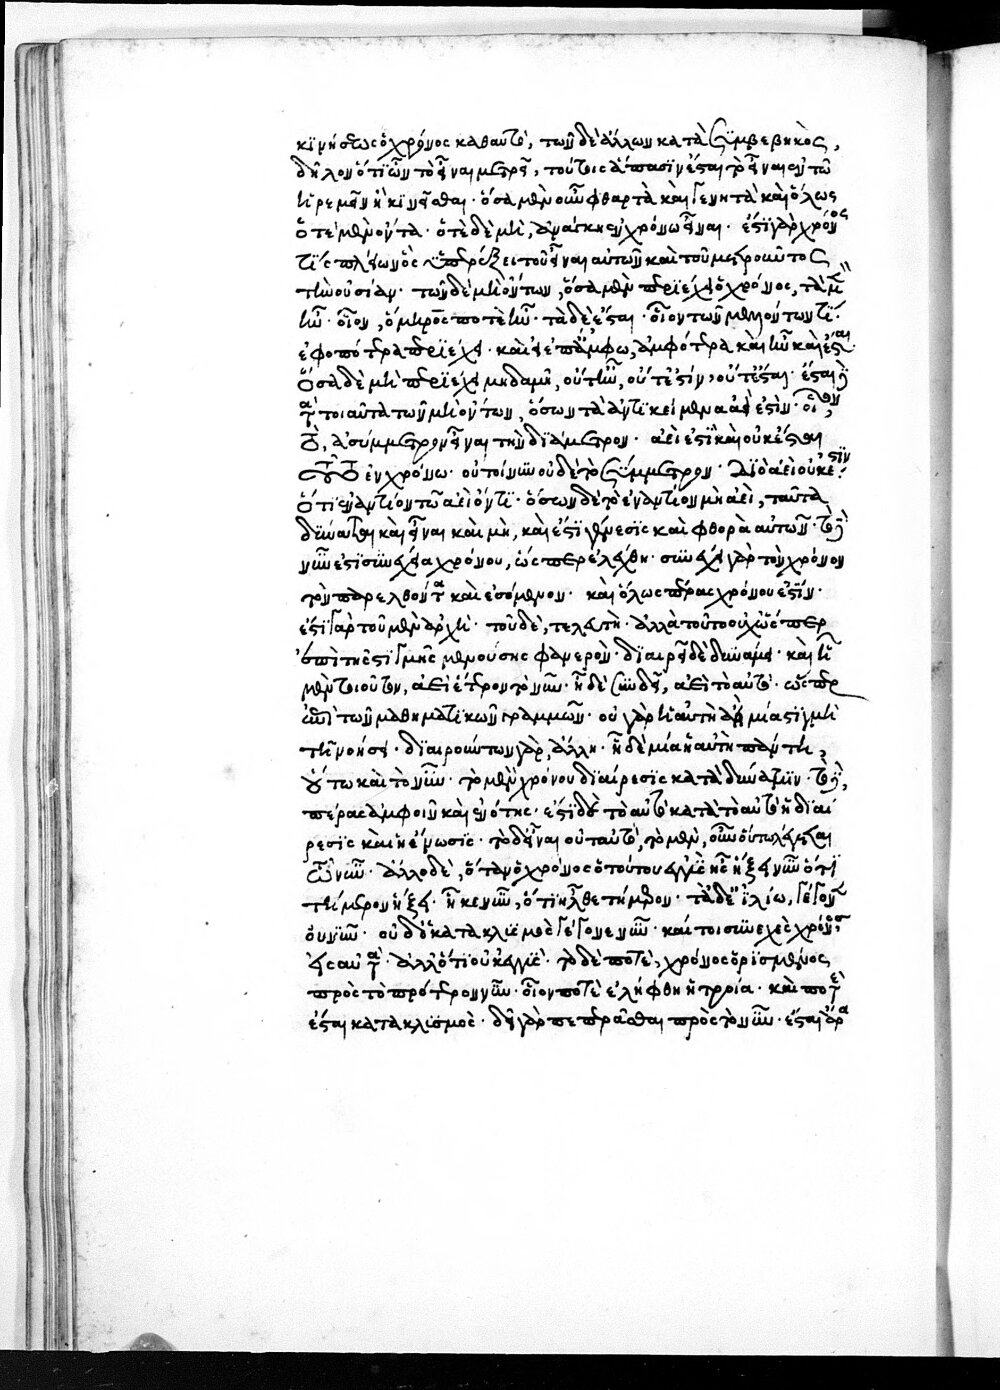 κινήσεως ὁ χρόνος καθαυτό, τῶν δὲ ἄλλων κατὰ συμβεβηκός,
δῆλον ὅτι ὧν τὸ εἶναι μετρεῖ, τούτοις ἅπασιν ἔσται τὸ εἶναι ἐν τῶ
ἠρεμεῖν ἢ κινεῖσθαι· ὅσα μὲν οὖν φθαρτὰ καὶ γενητὰ καὶ ὅλως
ὁτὲ μὲν ὄντα· ὁτὲ δὲ μὴ, ἀνάγκη ἐν χρόνω εἶναι· ἔστι γὰρ χρόνος
τίς πλείων ὃς ὑπερέξει τοῦ εἶναι αὐτῶν καὶ τοῦ μετροῦντος
τὴν οὐσίαν· τῶν δὲ μὴ ὄντων, ὅσα μὲν περιέχει ὁ χρόνος, τὰ μὲν
ἦν· οἷον, ὅμηρός ποτὲ ἦν· τὰ δὲ ἔσται· οἷον τῶν μελλόντων τί·
ἐφ ὁπότερα περιέχει· καὶ εἰ ἐπ ἄμφω, ἀμφότερα καὶ ἦν καὶ ἔσται·
ὅσα δὲ μὴ περιέχει μηδαμῆ, οὔτ ἦν, οὔτ ἔστιν, οὔτ ἔσται· ἔστι δὲ
τὰ τοιαῦτα τῶν μὴ ὄντων, ὅσων τὰ ἀντικείμενα ἀεὶ ἐστίν· οἷον,
τὸ, ἀσύμμετρον εἶναι τὴν διάμετρον· ἀεὶ ἐστὶ καὶ οὐκ ἔσται
τοῦτο ἐν χρόνω· οὐ τοίνυν οὐδὲ τὸ σύμμετρον· διὸ ἀεὶ οὐκ ἔστιν·
ὅτι ἐναντίον τῶ ἀεὶ ὄντι· ὅσων δὲ τὸ ἐναντίον μὴ ἀεὶ, ταῦτα
δύναται καὶ εἶναι καὶ μὴ, καὶ ἔστι γένεσις καὶ φθορὰ αὐτῶν· τὸ δὲ
νῦν ἐστὶ συνέχεια χρόνου, ὥσπερ ἐλέχθη· συνέχει γὰρ τὸν χρόνον
τὸν παρελθόντα καὶ ἐσόμενον· καὶ ὅλως πέρας χρόνου ἐστίν·
ἔστι γὰρ τοῦ μὲν ἀρχὴ· τοῦ δὲ, τελευτὴ· ἀλλὰ τοῦτο οὐχ ὥσπερ
ἐπὶ τῆς στιγμῆς μενούσης φανερὸν· διαιρεῖ δὲ δυνάμει· καὶ ἧ
μὲν τοιοῦτον, ἀεὶ ἕτερον τὸ νῦν· ἧ δὲ συνδεῖ, ἀεὶ τὸ αὐτό· ὥσπερ
ἐπὶ τῶν μαθηματικῶν γραμμῶν· οὐ γὰρ ἡ αὐτὴ ἀεὶ μία στιγμὴ
τῆ νοήσει· διαιρούντων γὰρ, ἄλλη· ἧ δὲ μία ἡ αὐτὴ πάντη,
οὕτω καὶ τὸ νῦν· τὸ μὲν χρόνου διαίρεσις κατὰ δύναμιν· τὸ δὲ,
πέρας ἀμφοῖν καὶ ἑνότης· ἔστι δὲ τὸ αὐτὸ κατὰ τὸ αὐτὸ ἡ διαί
ρεσις καὶ ἡ ἕνωσις· τὸ δ εἶναι οὐ ταὐτό, τὸ μὲν, οὖν οὕτω λέγεται
τῶν νῦν· ἄλλο δὲ, ὅταν ὁ χρόνος ὁ τούτου ἐγγὺς ἦ ἥξει νῦν ὅτι
τήμερον ἥξει· ἧκε νῦν, ὅτι ἦλθε τήμερον· τὰ δ ἐν ἰλίω, γέγονεν
οὐ νῦν· οὐδ ὁ κατακλυσμὸς γέγονε νῦν· καίτοι συνεχὴς χρόνος
εἰς αὐτά· ἀλλ ὅτι οὐκ ἐγγύς· τὸ δὲ ποτέ, χρόνος ὡρισμένος
πρὸς τὸ πρότερον νῦν· οἷον ποτὲ ἐλήφθη ἡ τροία· καὶ ποτὲ
ἔσται κατακλυσμὸς· δεῖ γὰρ πεπεράνθαι πρὸς τὸ νῦν· ἔσται ἄρα